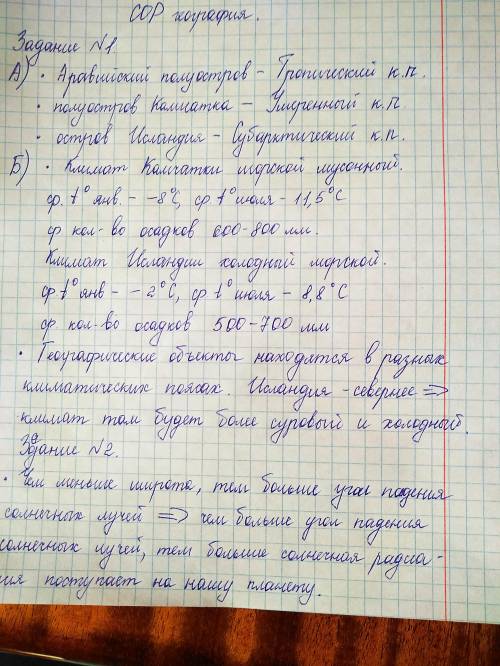 СОР география.
Задание №1
А) • Аравийский полуостров – Тропический к.п.
• полуостров Камчатка – Умеренный к.п
• остров Исландия – Субарктический к.п.
Б) • Климат Камчатки морской муссонный.
ср. t° янв. – -8°С, ср t° июля – 11,5°С
ср кол-во осадков 600-800 мм.
Климат Исландии холодный морской.
ср t° янв – -2°С, ср t° июля – 8,8°С
ср. кол-во осадков 500-700 мм
• Географические объекты находятся в разных
климатических поясах. Исландия - севернее =>
климат там будет более суровый и холодный.
Задание №2.
• Чем меньше широта, тем больше угол падения
солнечных лучей => чем больше угол падения
солнечных лучей, тем больше солнечная радиа-
ия поступает на нашу планету.